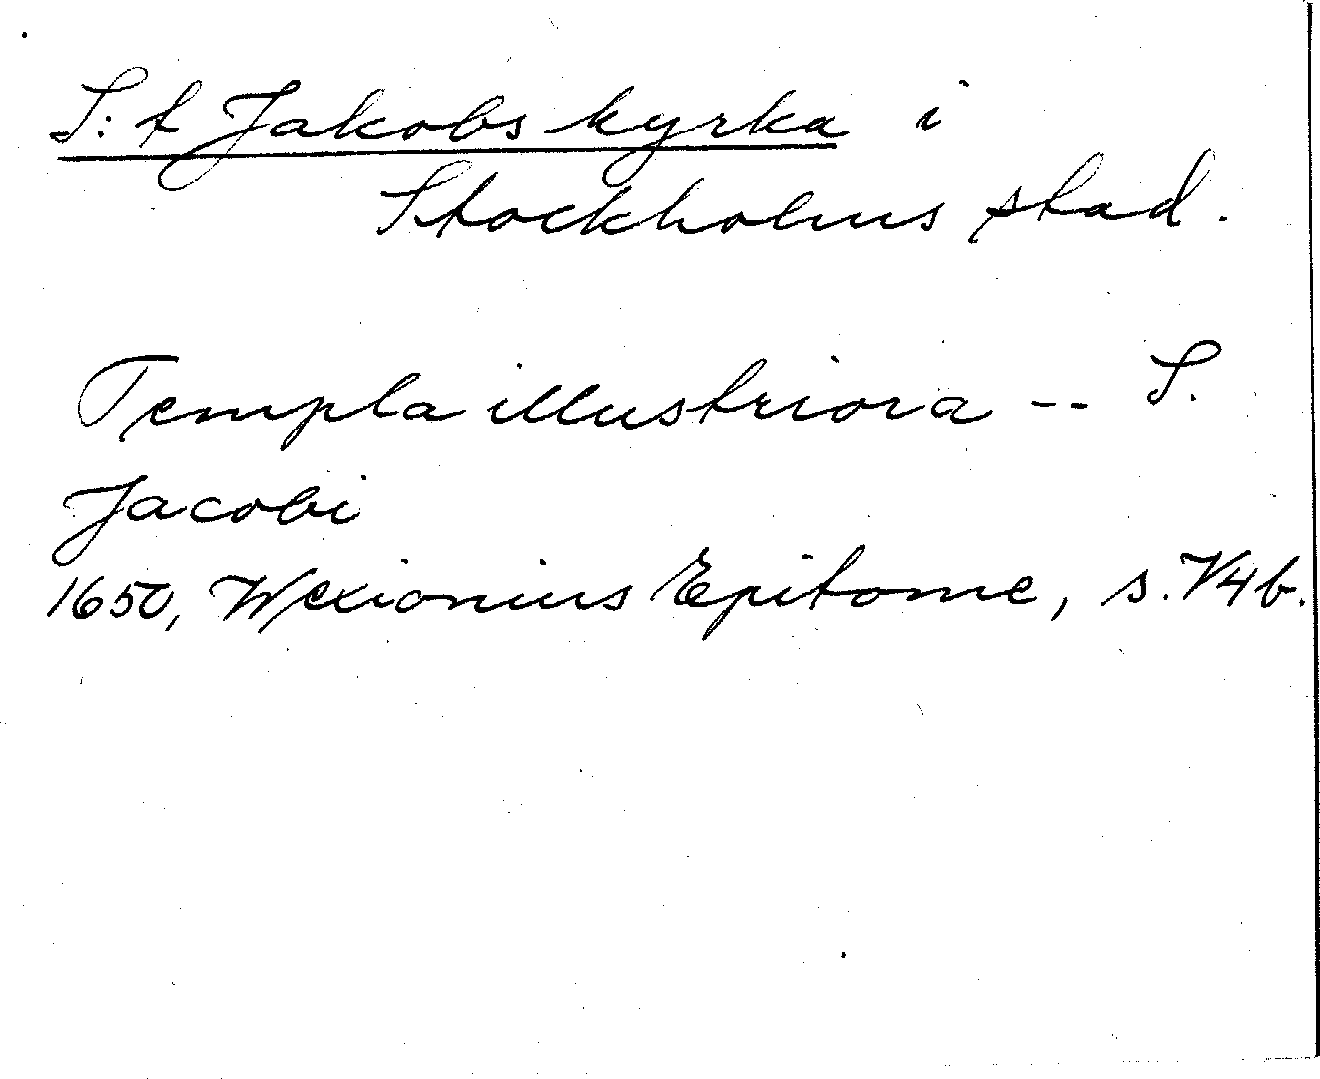 S:t Jakobs kyrka i
Stockholms stad.
Templa illustriora -- S.
Jacobi
1650, Wexionius Epitome, s. V4b.